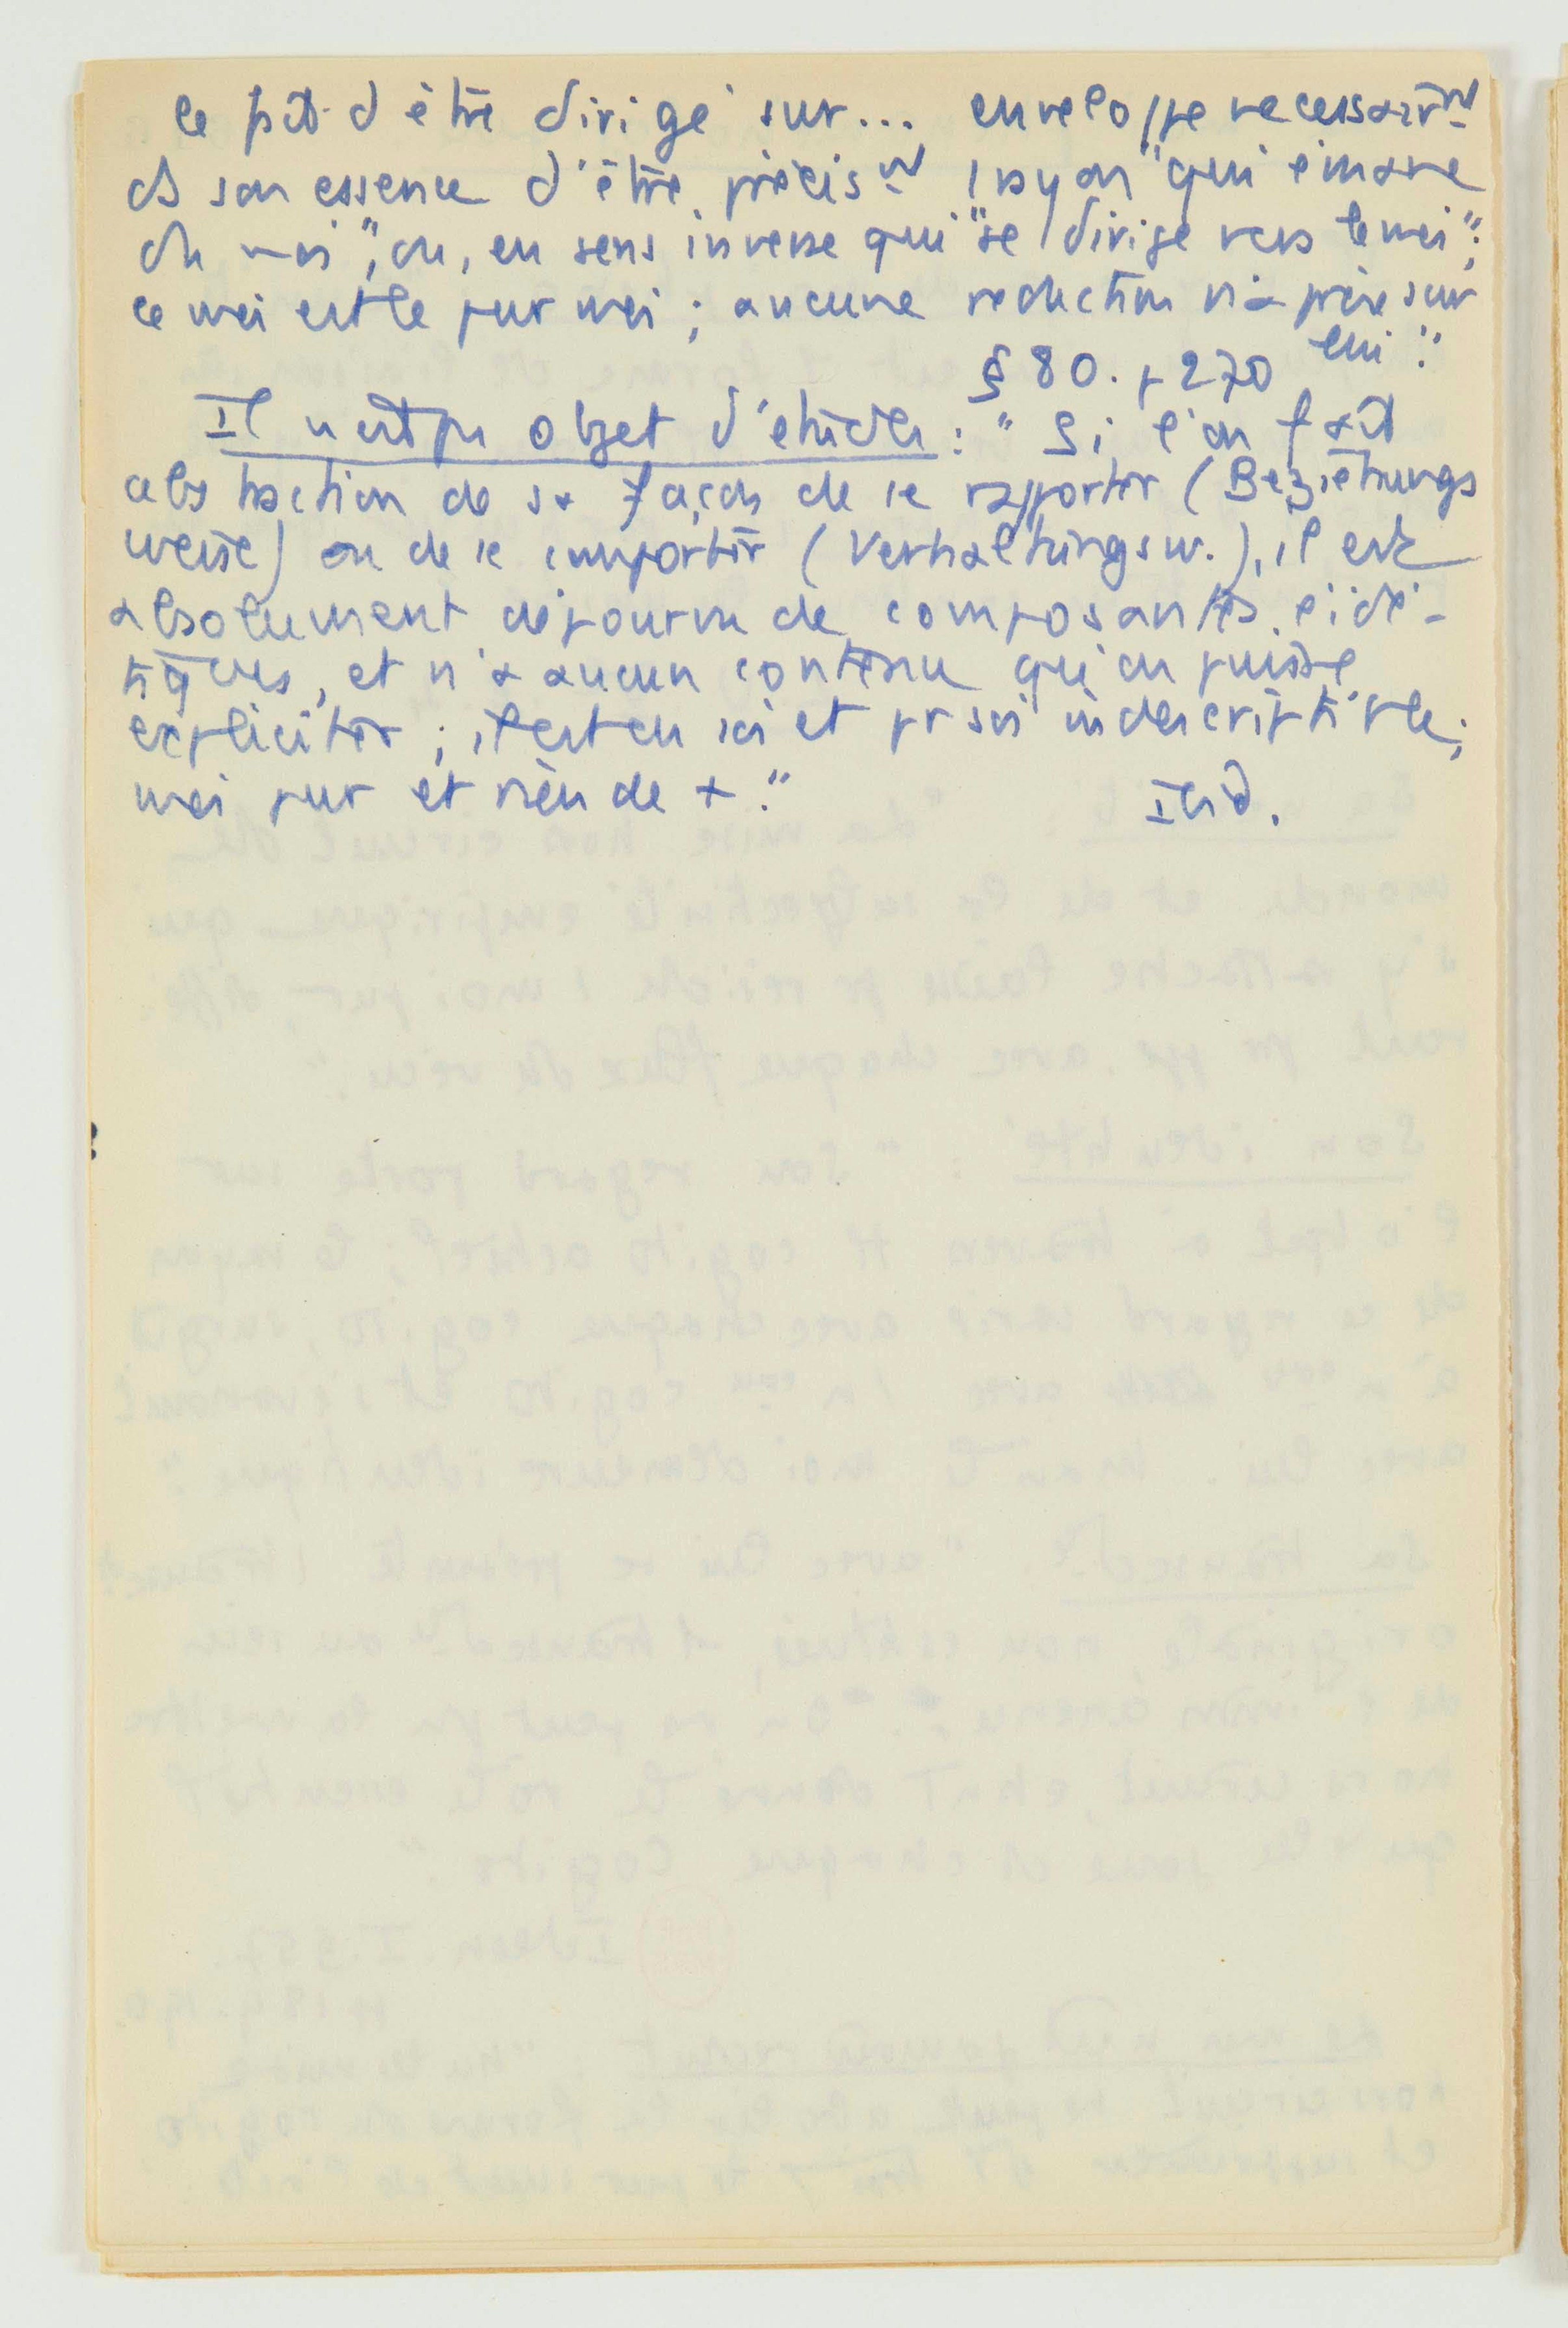 le fait d'être dirigé sur... enveloppe necessairmt
ds son essence d'être précismt 1 rayon "qui émane
du moi", ou, en sens inverse qui "se dirige vers le moi";
ce moi est le pur moi ; aucune reduction n'a prise sur
lui."
§ 80. p 270
Il n'est pas objet d'étude : "Si l'on fait
abstraction de sa façon de se rapporter (Beziehungs
weise) ou de se comporter (Verhaltungsw.), il est
absolument dépourvu de composantes eidé-
tiques, et n'a aucun contenu qu'on puisse
expliciter ; il est en soi et pr soi indescriptible ;
moi pur et rien de +."
Ibid.